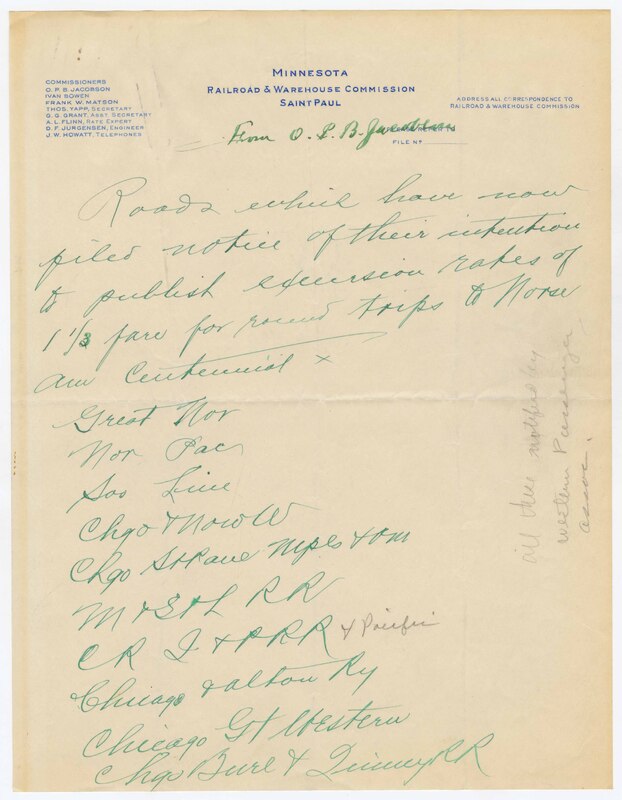 MINNESOTA
RAILROAD & WAREHOUSE COMMISSION
SAINT PAUL
COMMISSIONERS
O. P. B. JACOBSON
IVAN BOWEN
FRANK W. MATSON
THOS. YAPP, SECRETARY
G. G. GRANT, ASST SECRETARY
A. L. FLINN, RATE EXPERT
D. F. JURGENSEN, ENGINEER
J. W. HOWATT, TELEPHONES
ADDRESS ALL CORRESPONDENCE TO
RAILROAD & WAREHOUSE COMMISSION
From O. P. B. Jacobson
FILE Nº
Roads which have now
filed notice of their intention
to publish excursion rates of
1 1/3 fare for round trips to Norse
Am Centennial x
Great Nor
Nor Pac
Soo Line
Chgo & Now W
Chgo St Paul Mpls & Om
M & St L RR
C R I & P RR & Pacific
Chicago & Alton Ry
Chicago Gt Western
Chgo Burl & Quincy RR
all these notified by
Western Passenger
Assoc.